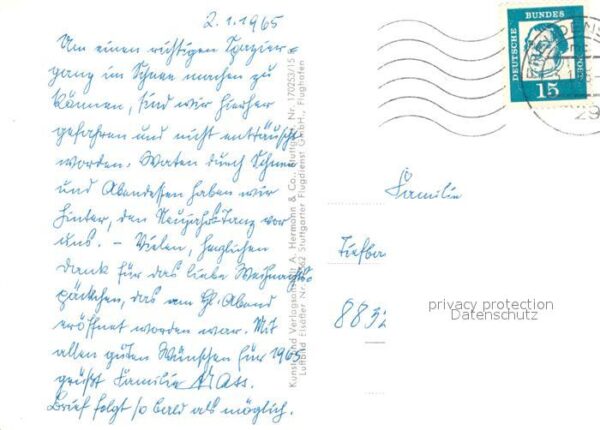 2.1.1965
Um einen richtigen Spazier-
gang im Schnee machen zu
können, sind wir hierher
gefahren und nicht enttäuscht
worden. Waten durch Schnee
und Abendessen haben wir
hinter, den Neujahrs-Tanz vor
uns. – Vielen, herzlichen
Dank für das liebe Weihnachts-
päckchen, das am Hl. Abend
eröffnet worden war. Mit
allen guten Wünschen für 1965
grüßt Familie Mass.
Brief folgt so bald als möglich.
Kunst- und Verlagsanstalt A. Hermann & Co., Stuttgart Nr. 170253/15
Luftbild Elsäßer Nr. 9/662 Stuttgarter Flugdienst GmbH., Flughafen
DEUTSCHE BUNDESPOST
15
29
Familie
Tiefba
8832
privacy protection
Datenschutz